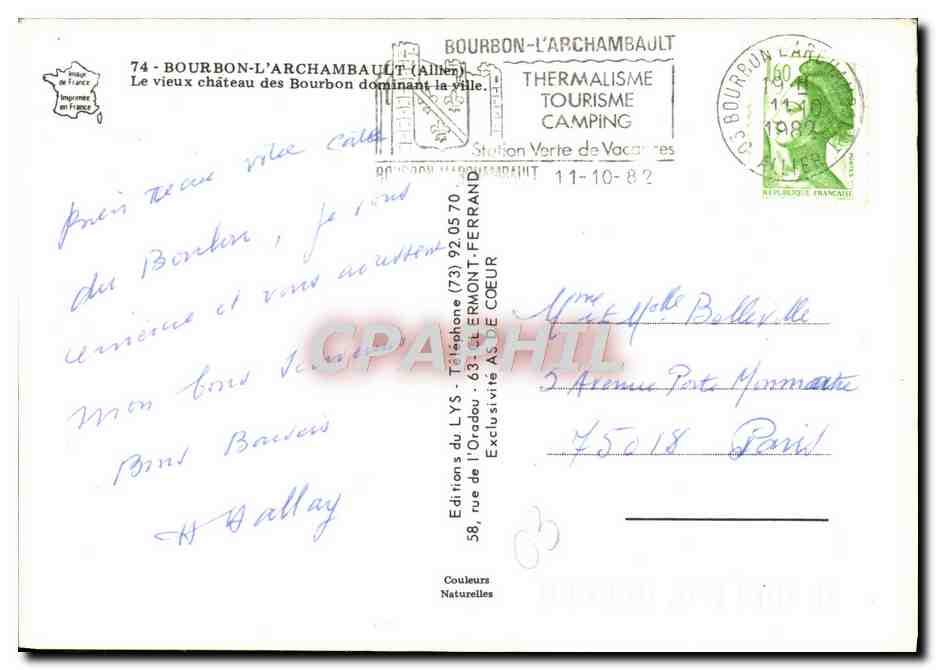 Image
de France
Imprimée
en France
74 - BOURBON-L'ARCHAMBAULT (Allier)
Le vieux château des Bourbon dominant la ville.
BOURBON-L'ARCHAMBAULT
THERMALISME
TOURISME
CAMPING
Station Verte de Vacances
BOURBON-L'ARCHAMBAULT 11-10-82
03 BOURBON L'ARCHAMBAULT
11-10
1982
ALLIER
1,60
REPUBLIQUE FRANÇAISE
Bien reçue votre carte
du Bourbon, je vous
remercie et vous adressent
mon bons
Bons Baisers
Editions du LYS - Téléphone (73) 92.05.70
58, rue de l'Oradou - 63-CLERMONT-FERRAND
Exclusivité AS DE COEUR
Mme et Melle Belleville
5 Avenue Porte Montmartre
75018 Paris
03
Couleurs
Naturelles
CPAPHIL